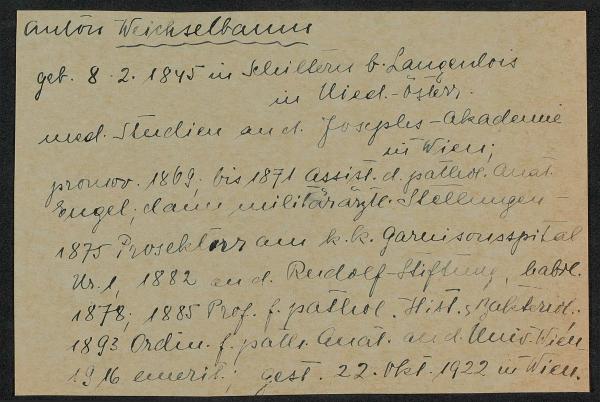 Anton Weichselbaum
geb. 8.2.1845 in Schiltern b. Langenlois
in Nied.-Österr.
med. Studien an d. Josephs-Akademie
in Wien;
promov. 1869; bis 1871 Assist. d. pathol. Anat.
Engel; dann militärärztl. Stellungen -
1875 Prosektor am k.k. Garnisonsspital
Nr. 1, 1882 an d. Rudolf-Stiftung, habil.
1878; 1885 Prof. f. pathol. Hist. u. Bakteriol.,
1893 Ordin. f. path. Anat. an d. Univ. Wien
1916 emerit.; gest. 22. Okt. 1922 in Wien.